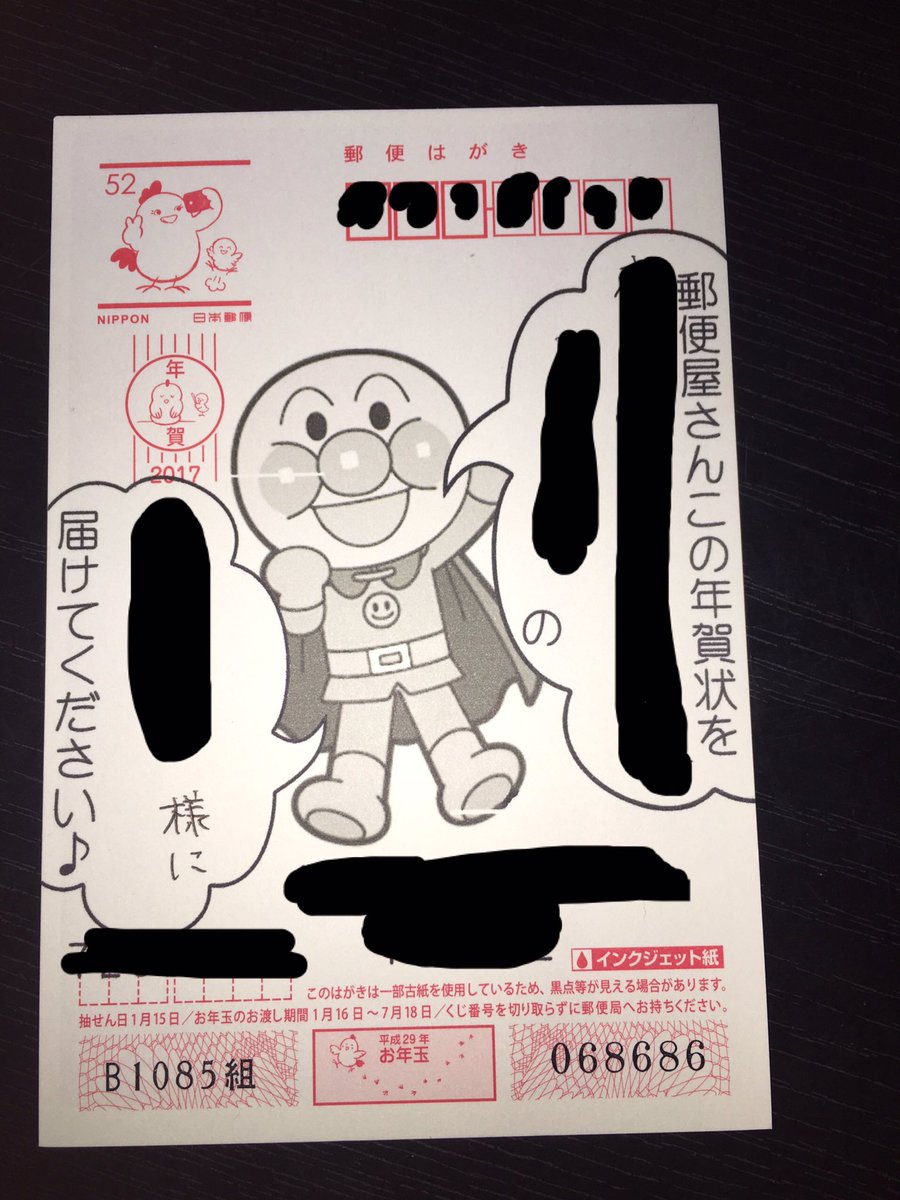 郵便はがき
52
NIPPON 日本郵便
年
賀
2017
郵便屋さんこの年賀状を
の
様に
届けてください♪
インクジェット紙
このはがきは一部古紙を使用しているため、黒点等が見える場合があります。
抽せん日1月15日／お年玉のお渡し期間1月16日～7月18日／くじ番号を切り取らずに郵便局へお持ちください。
B1085組
平成29年
お年玉
068686